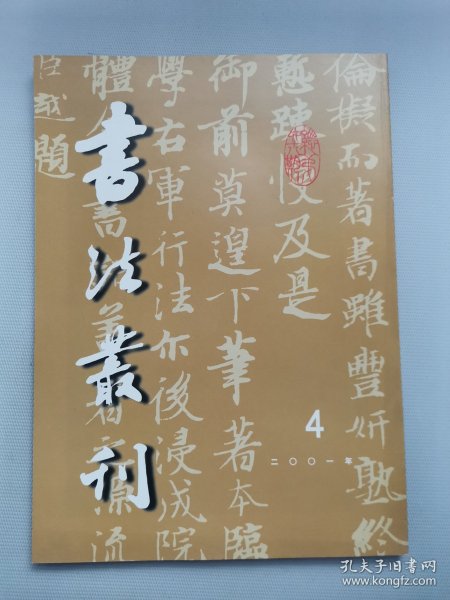 書法叢刊
4
二〇〇一年
倫擬而著書雖豐妍熟終
及是
御前莫遑下筆著本臨
學右軍行法尔後浸成院
體
流
臣越題
孔夫子旧书网
www.kongfz.com